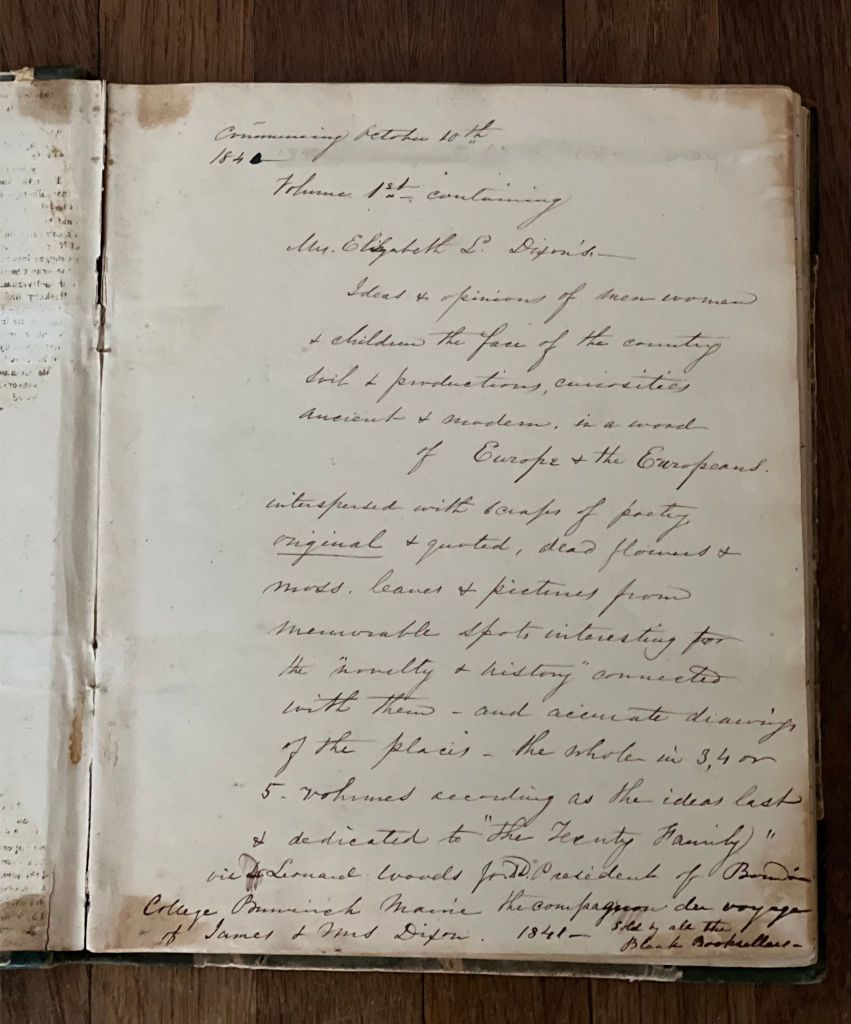 Commencing October 10th
184
Volume 1st containing
Mrs. Elizabeth L. Dixon's.—
Ideas & opinions of men women
& children the face of the country
soil & productions, curiosities
ancient & modern. in a word
of Europe & the Europeans.
interspersed with scraps of poetry,
original & quoted, dead flowers &
moss. leaves & pictures from
memorable spots interesting for
the "novelty & history" connected
with them – and accurate drawings
of the places – the whole in 3, 4 or
5 – volumes according as the ideas last
& dedicated to "the Family"
Leonard Woods President of
College Maine the compagnon du voyage
of James & Mrs Dixon. 1841 –
Sold by all the
Blank Booksellers –